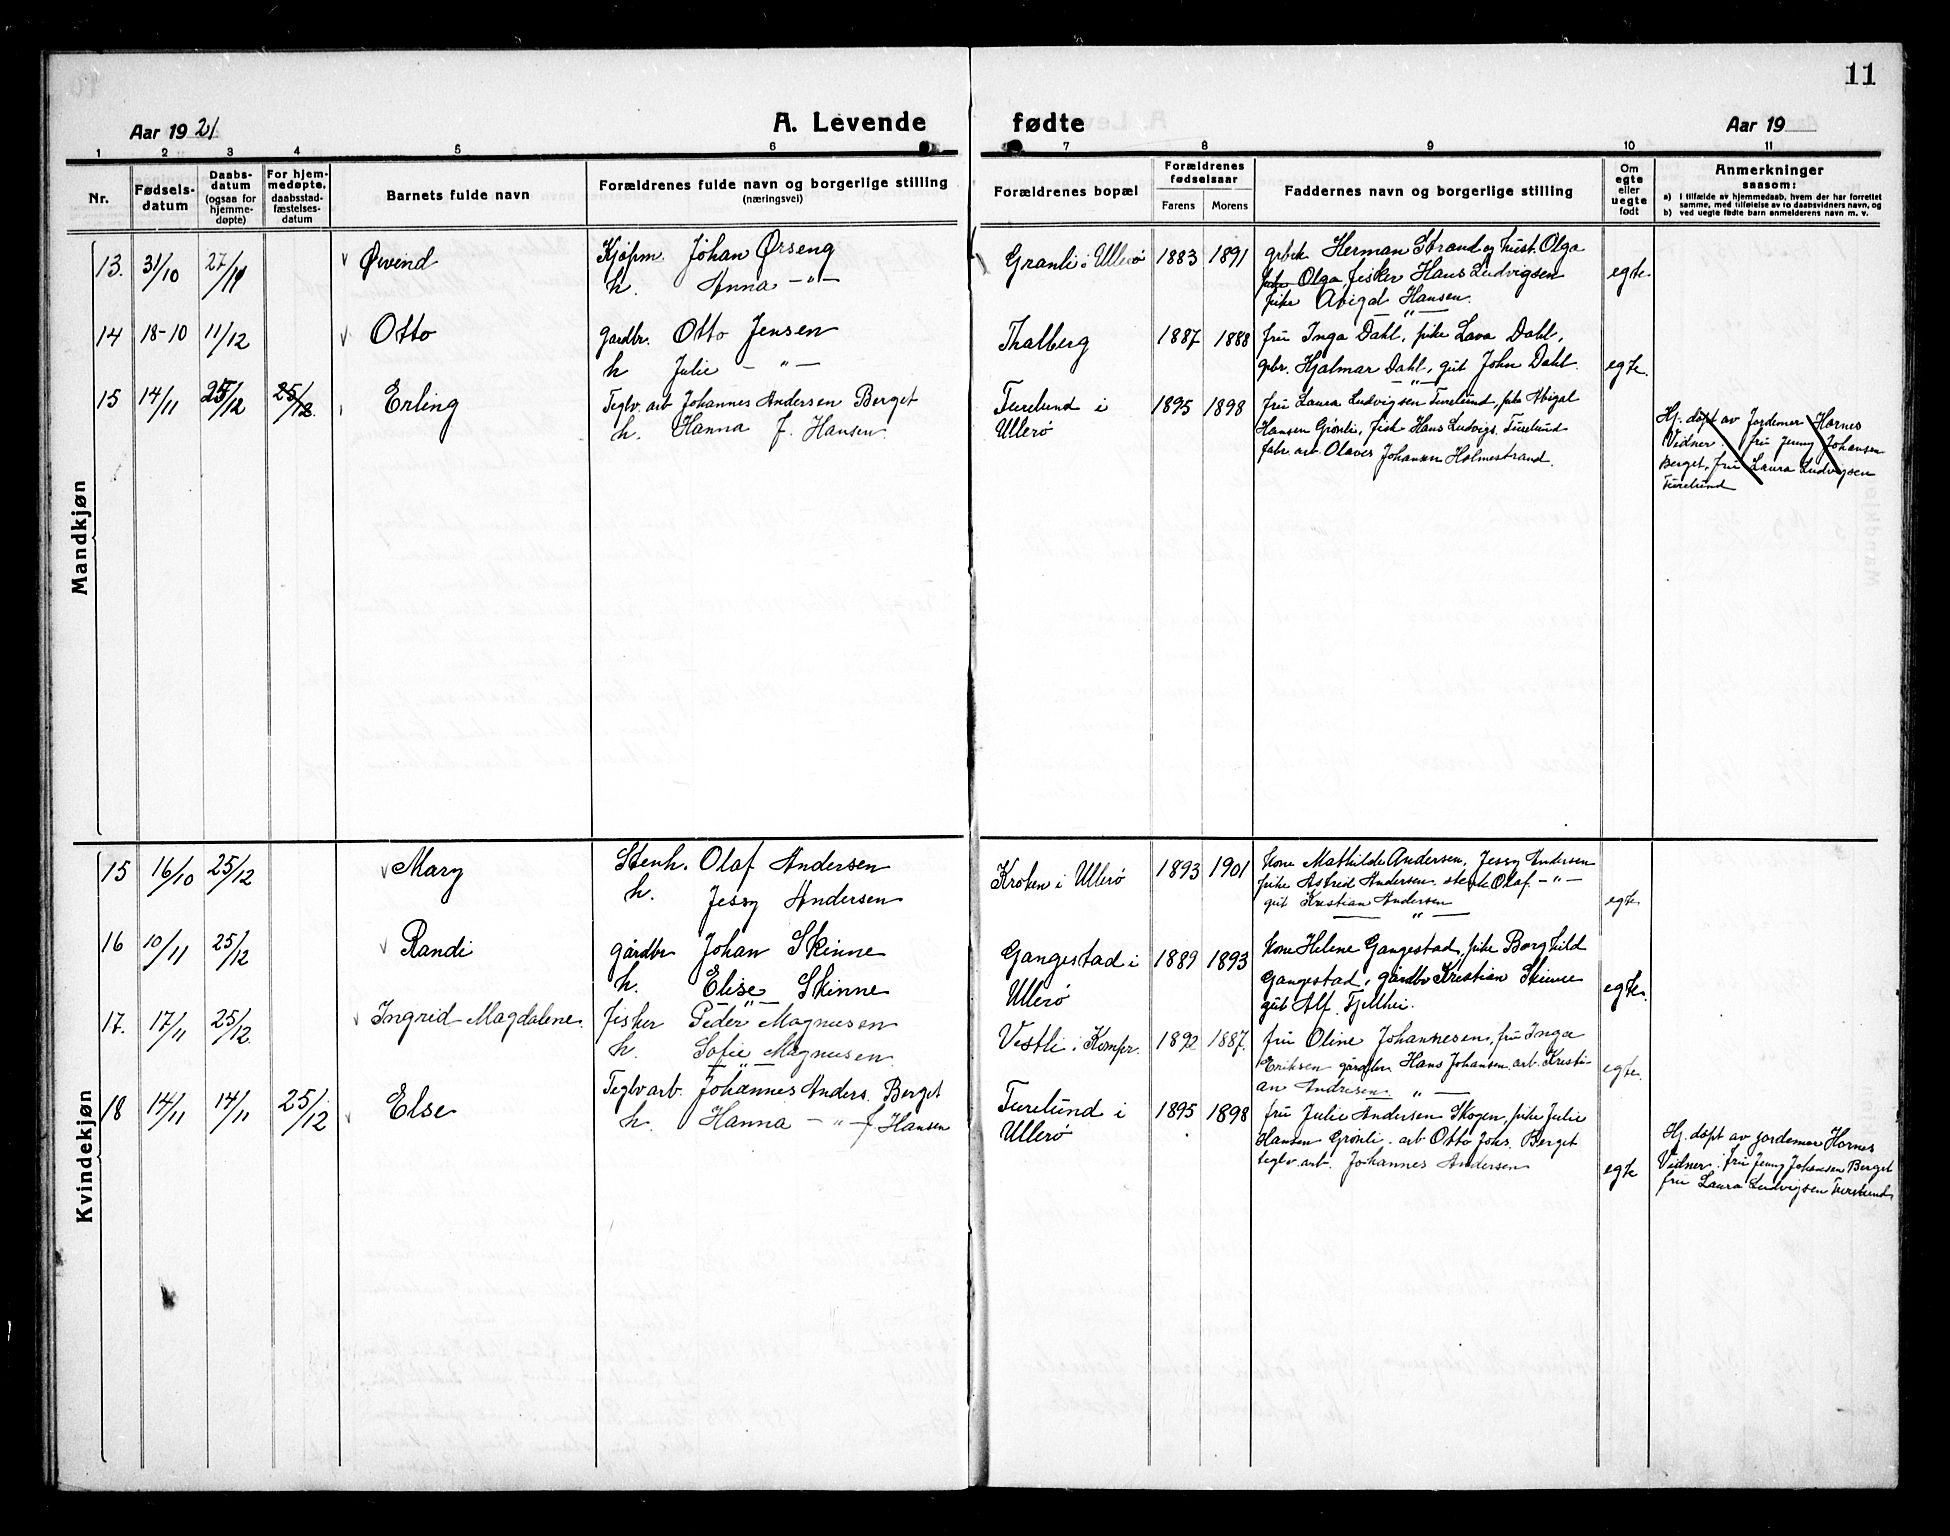 11
Aar 1921
A. Levende fødte
Aar 19
1 2 3 4 5 6 7 8 9 10 11
Nr.
Fødsels-
datum
Daabs-
datum
(ogsaa for
hjemme-
døpte)
For hjem-
medøpte,
daabsstad-
fæstelses-
datum
Barnets fulde navn
Forældrenes fulde navn og borgerlige stilling
(næringsvei)
Forældrenes bopæl
Forældrenes
fødselsaar
Farens Morens
Faddernes navn og borgerlige stilling
Om
egte
eller
uegte
født
Anmerkninger
saasom:
a) I tilfælde av hjemmedaab, hvem der har forrettet
samme, med tilføielse av to daabsvidners navn, og
b) ved uegte fødte barn anmelderens navn m. v.
Mandkjøn
13. 31/10 27/11 Øivind
Kjøpm. Johan Ørseng
h. Anna -"-
Granli i Ullerø 1883 1891
Herman Strand og hust. Olga
Olga, fisker Hans Ludvigsen
pike Abigal Hansen.
egte.
14 18-10 11/12 Otto
gardbr. Otto Jensen
h Julie - " -
Thalberg 1887 1888
fru Inga Dahl, pike Lava Dahl,
gbr. Hjalmar Dahl, gut John Dahl.
egte.
15 14/11 25/12 25/12. Erling
Teglv. arb Johannes Andersen Berget
h. Hanna f. Hansen.
Furelund i
Ullerø
1895 1898
fru Laura Ludvigsen Furelund, pike Abigal
Hansen Grønli, fisk Hans Ludvigs. Furelund
fabr. arb. Olaves Johansen Holmestrand.
Hj. døpt av Jordemor Hornes
Vidner fru Jenny Johansen
Berget, fru Laura Ludvigsen
Furelund
Kvindekjøn
15 16/10 25/12 Mary
Stenh. Olaf Andersen
h. Jessy Andersen
Kroken i Ullerø 1893 1901
kone Mathilde Andersen, Jessy Andersen
pike Astrid Andersen. Olaf -"-
gut Kristian Andersen
egte
16 10/11 25/12 Randi
gårdbr Johan Skinne
h. Elise Skinne
Gangestad i
Ullerø
1889 1893
kone Helene Gangestad, pike Borghild
Gangestad, gårdbr Kristian Skinne
gut Alf Fjellhei.
egte.
17. 17/11 25/12. Ingrid Magdalene.
fisker Peder Magnusen
h. Sofie Magnusen
Vestli i Kompr. 1892 1887.
fru Oline Johannesen, fru Inga
Eriksen gårdbr Hans Johansen, arb. Kristi-
an Andresen
egte.
18 14/11 14/11 25/12 Else
Teglv arb. Johannes Anders. Berget
h. Hanna - " - f Hansen
Furelund i
Ullerø
1895 1898
fru Julie Andersen Skogen, pike Julie
Hansen Grønli. arb Otto Johs. Berget
teglv. arb. Johannes Andersen
egte
Hj. døpt av jordemor Hornes
Vidner: fru Jenny Johansen Berget
fru Laura Ludvigsen Furelund